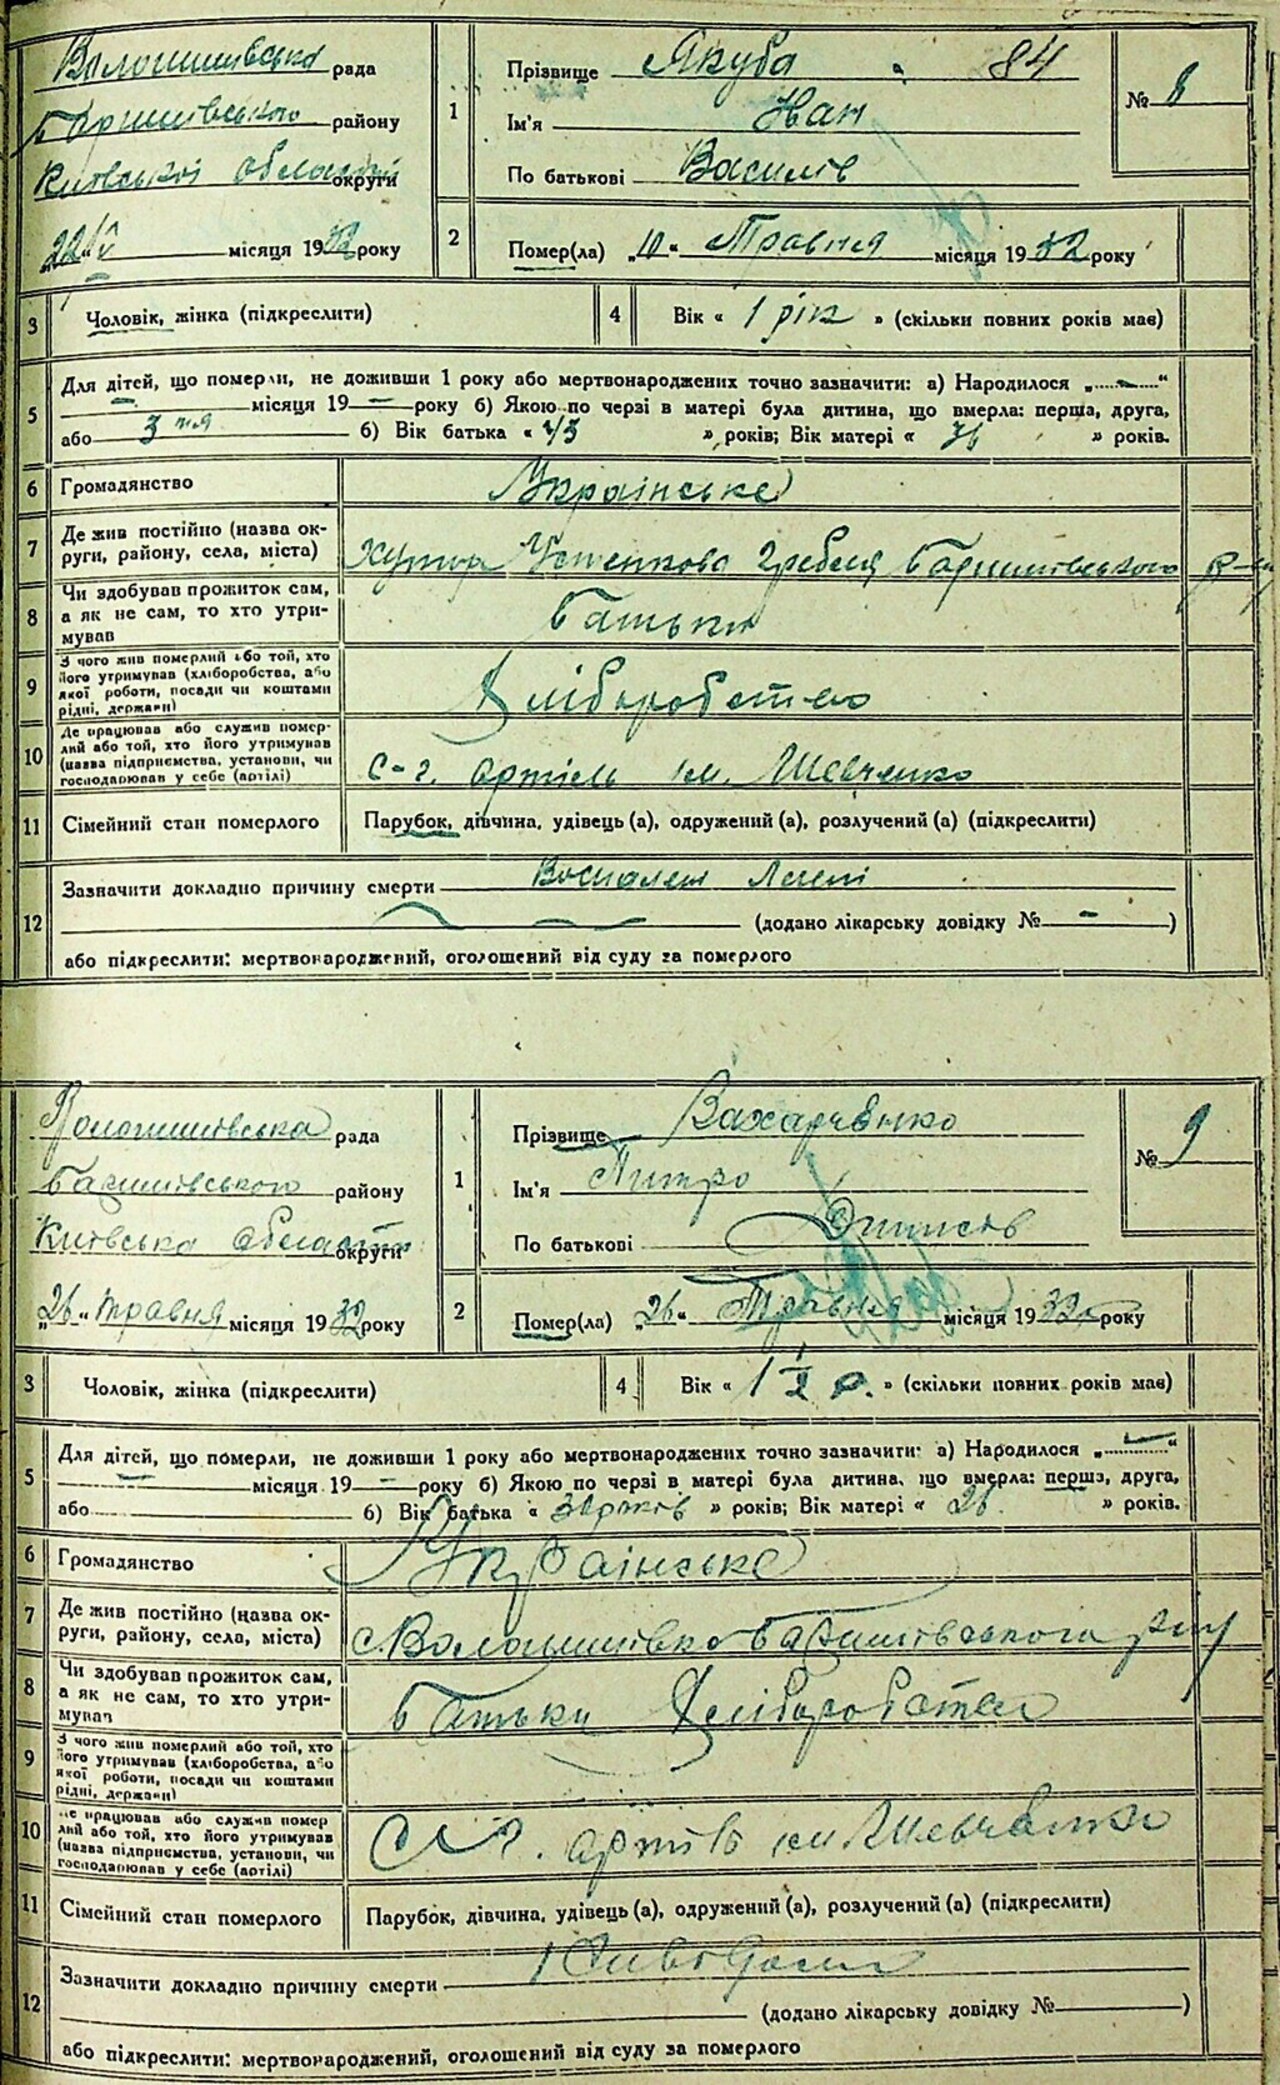 Волошинівська рада
Баришівського району
Київської області округи
„22“ IV місяця 1932 року
1
Прізвище Якуба 84
Ім'я Іван
По батькові Василів
№ 8
2
Помер(ла) „10“ Травня місяця 1932 року
3 Чоловік, жінка (підкреслити)
4 Вік « 1 рік » (скільки повних років має)
5 Для дітей, що померли, не доживши 1 року або мертвонароджених точно зазначити: а) Народилося „ — “
— місяця 19 — року б) Якою по черзі в матері була дитина, що вмерла: перша, друга,
або 3 тя б) Вік батька « 43 » років; Вік матері « 36 » років.
6 Громадянство Українське
7 Де жив постійно (назва округи, району, села, міста) хутор Устенкова Гребля Баришівського р-ну
8 Чи здобував прожиток сам, а як не сам, то хто утримував Батьки
9 З чого жив померлий або той, хто його утримував (хліборобства, або якої роботи, посади чи коштами рідні, держави) Хліборобство
10 Де працював або служив померлий або той, хто його утримував (назва підприємства, установи, чи господарював у себе (артілі) С-г. артіль ім. Шевченко
11 Сімейний стан померлого Парубок, дівчина, удівець (а), одружений (а), розлучений (а) (підкреслити)
12 Зазначити докладно причину смерти Воспалені Легені
(додано лікарську довідку № — )
або підкреслити: мертвонароджений, оголошений від суду за померлого
Волошинівська рада
Баришівського району
Київська область округи
„26“ травня місяця 1932 року
1
Прізвище Захарченко
Ім'я Питро
По батькові
№ 9
2
Помер(ла) „26“ Травня місяця 1932 року
3 Чоловік, жінка (підкреслити)
4 Вік « 1 ½ р. » (скільки повних років має)
5 Для дітей, що померли, не доживши 1 року або мертвонароджених точно зазначити: а) Народилося „ — “
— місяця 19 — року б) Якою по черзі в матері була дитина, що вмерла: перша, друга,
або б) Вік батька « років » років; Вік матері « 26 » років.
6 Громадянство Українське
7 Де жив постійно (назва округи, району, села, міста) с Волошинівка Баришівського р-ну
8 Чи здобував прожиток сам, а як не сам, то хто утримував Батьки Хліборобство
9 З чого жив померлий або той, хто його утримував (хліборобства, або якої роботи, посади чи коштами рідні, держави)
10 Де працював або служив померлий або той, хто його утримував (назва підприємства, установи, чи господарював у себе (артілі) С-г. артіль ім Шевченко
11 Сімейний стан померлого Парубок, дівчина, удівець (а), одружений (а), розлучений (а) (підкреслити)
12 Зазначити докладно причину смерти
(додано лікарську довідку № )
або підкреслити: мертвонароджений, оголошений від суду за померлого